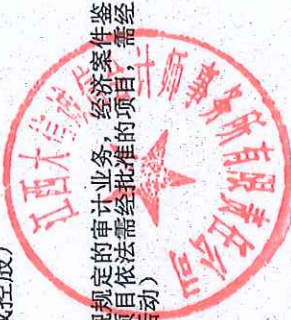 或控股)
规规定的审计业务，经济案件鉴
项目依法需经批准的项目，需经
活动)
江西大信诚会计师事务所有限责任公司